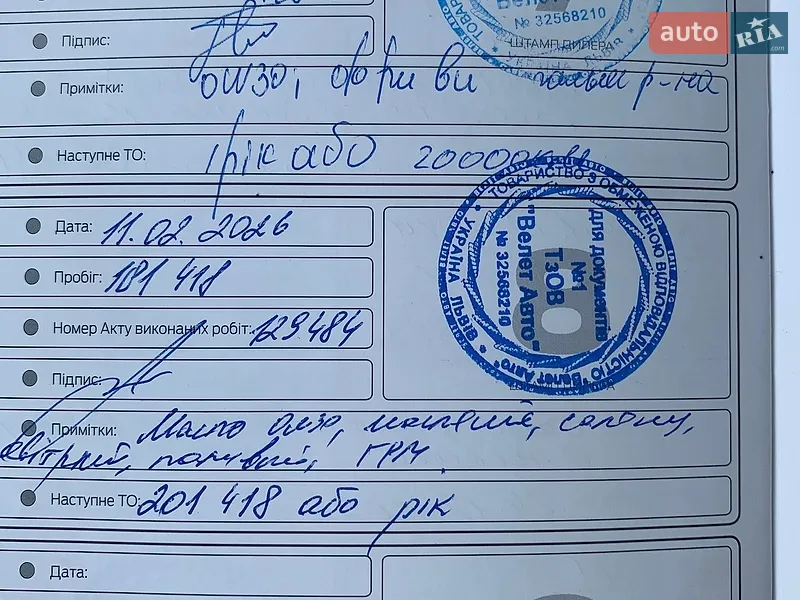 № 32568210
ШТАМП ДИЛЕРА
auto RIA .com
Підпис:
Примітки: 0W30,
Наступне ТО: 1 рік або 20000 км
Дата: 11.02.2026
Пробіг: 181 418
Номер Акту виконаних робіт: 129484
Підпис:
Примітки: Масло 0w30, масляний, салону,
повітряний, паливний, ГРМ
Наступне ТО: 201 418 або рік
ТОВАРИСТВО З ОБМЕЖЕНОЮ ВІДПОВІДАЛЬНІСТЮ "Велет Авто"
УКРАЇНА ЛЬВІВ
для документів
№1
ТзОВ
"Велет Авто"
№ 32568210
Дата: